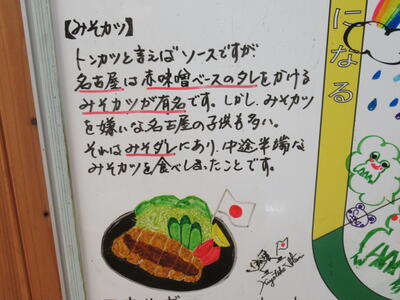 【みそカツ】
トンカツと言えばソースですが
名古屋は赤味噌ベースのタレをかける
みそカツが有名です。しかし、みそカツ
を嫌いな名古屋の子供も多い。
それはみそダレにあり、中途半端な
みそカツを食べしまったことです。
になる